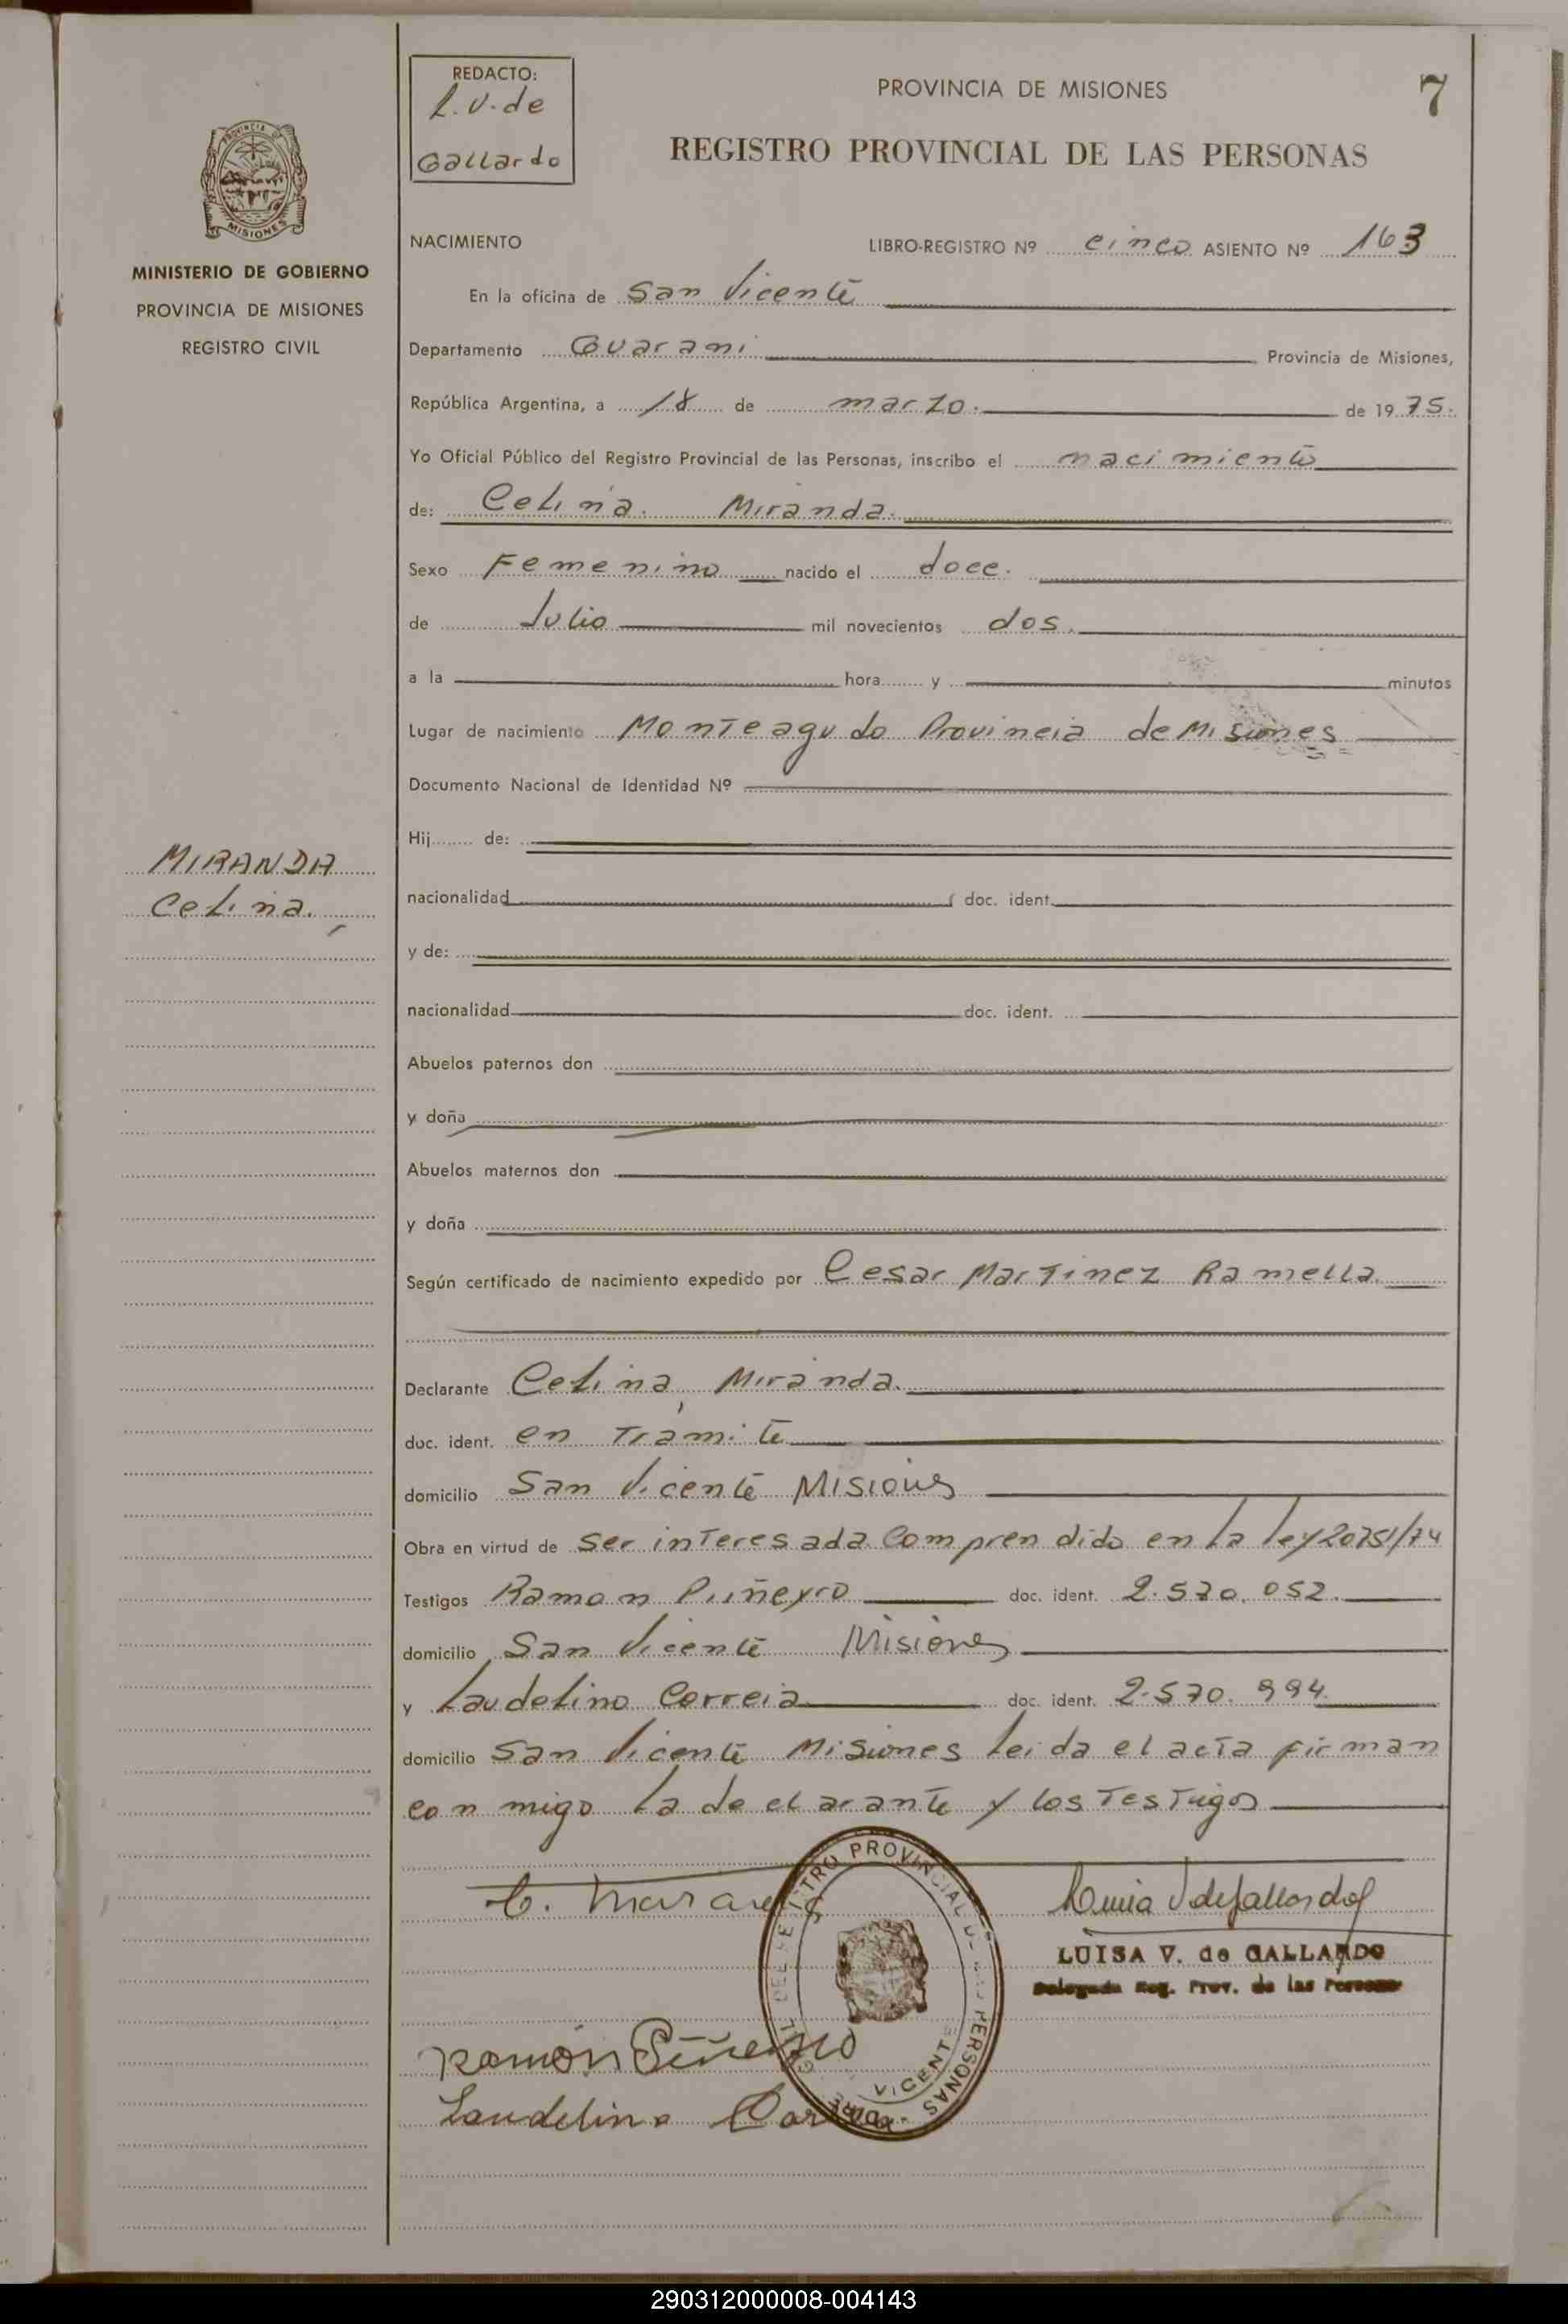 REDACTO:
L.V. de
Gallardo
PROVINCIA DE MISIONES
7
REGISTRO PROVINCIAL DE LAS PERSONAS
PROVINCIA DE
MISIONES
MINISTERIO DE GOBIERNO
PROVINCIA DE MISIONES
REGISTRO CIVIL
NACIMIENTO LIBRO-REGISTRO Nº cinco ASIENTO Nº 163
En la oficina de San Vicente
Departamento Guarani Provincia de Misiones,
República Argentina, a 18 de marzo. de 1975.
Yo Oficial Público del Registro Provincial de las Personas, inscribo el nacimiento
de: Celina. Miranda.
Sexo Femenino nacido el doce.
de Julio mil novecientos dos.
a la hora y minutos
Lugar de nacimiento Monteagudo Provincia de Misiones
Documento Nacional de Identidad Nº
Hij de:
MIRANDA
Celina.
nacionalidad doc. ident.
y de:
nacionalidad doc. ident.
Abuelos paternos don
y doña
Abuelos maternos don
y doña
Según certificado de nacimiento expedido por Cesar Martinez Ramella.
Declarante Celina Miranda.
doc. ident. en Tramite
domicilio San Vicente Misiones
Obra en virtud de ser interesada Comprendida en la ley 20751/74
Testigos Ramon Piñeyro doc. ident. 2.570.052.
domicilio San Vicente Misiones
y Laudelino Correia doc. ident. 2.570.994
domicilio San Vicente Misiones leida el acta firman
conmigo la declarante y los Testigos
LUISA V. de GALLARDO
Delegada Reg. Prov. de las Personas
Ramón Piñeyro
Laudelino
VICENTE
290312000008-004143